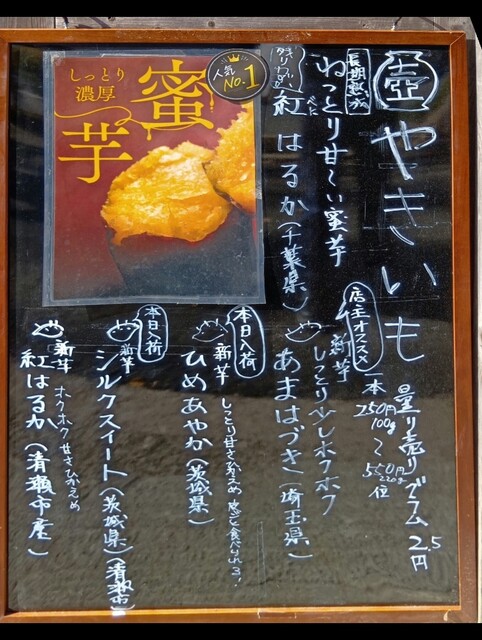 壺 やきいも
量り売りグラム2.5円
一本 250円 100g 〜 550円 220g 位
長期熟成
ねっとり甘〜い蜜芋
残りわずか
紅はるか(千葉県)
べに
人気 No.1
蜜芋
しっとり
濃厚
店主オススメ
新芋 しっとり少しホクホク
あまはづき(埼玉県)
本日入荷
新芋 しっとり甘さひかえめ 皮ごと食べられる!
ひめあやか(茨城県)
本日入荷
新芋
シルクスイート(茨城県)(清瀬市)
新芋 ホクホク 甘さひかえめ
紅はるか(清瀬市産)